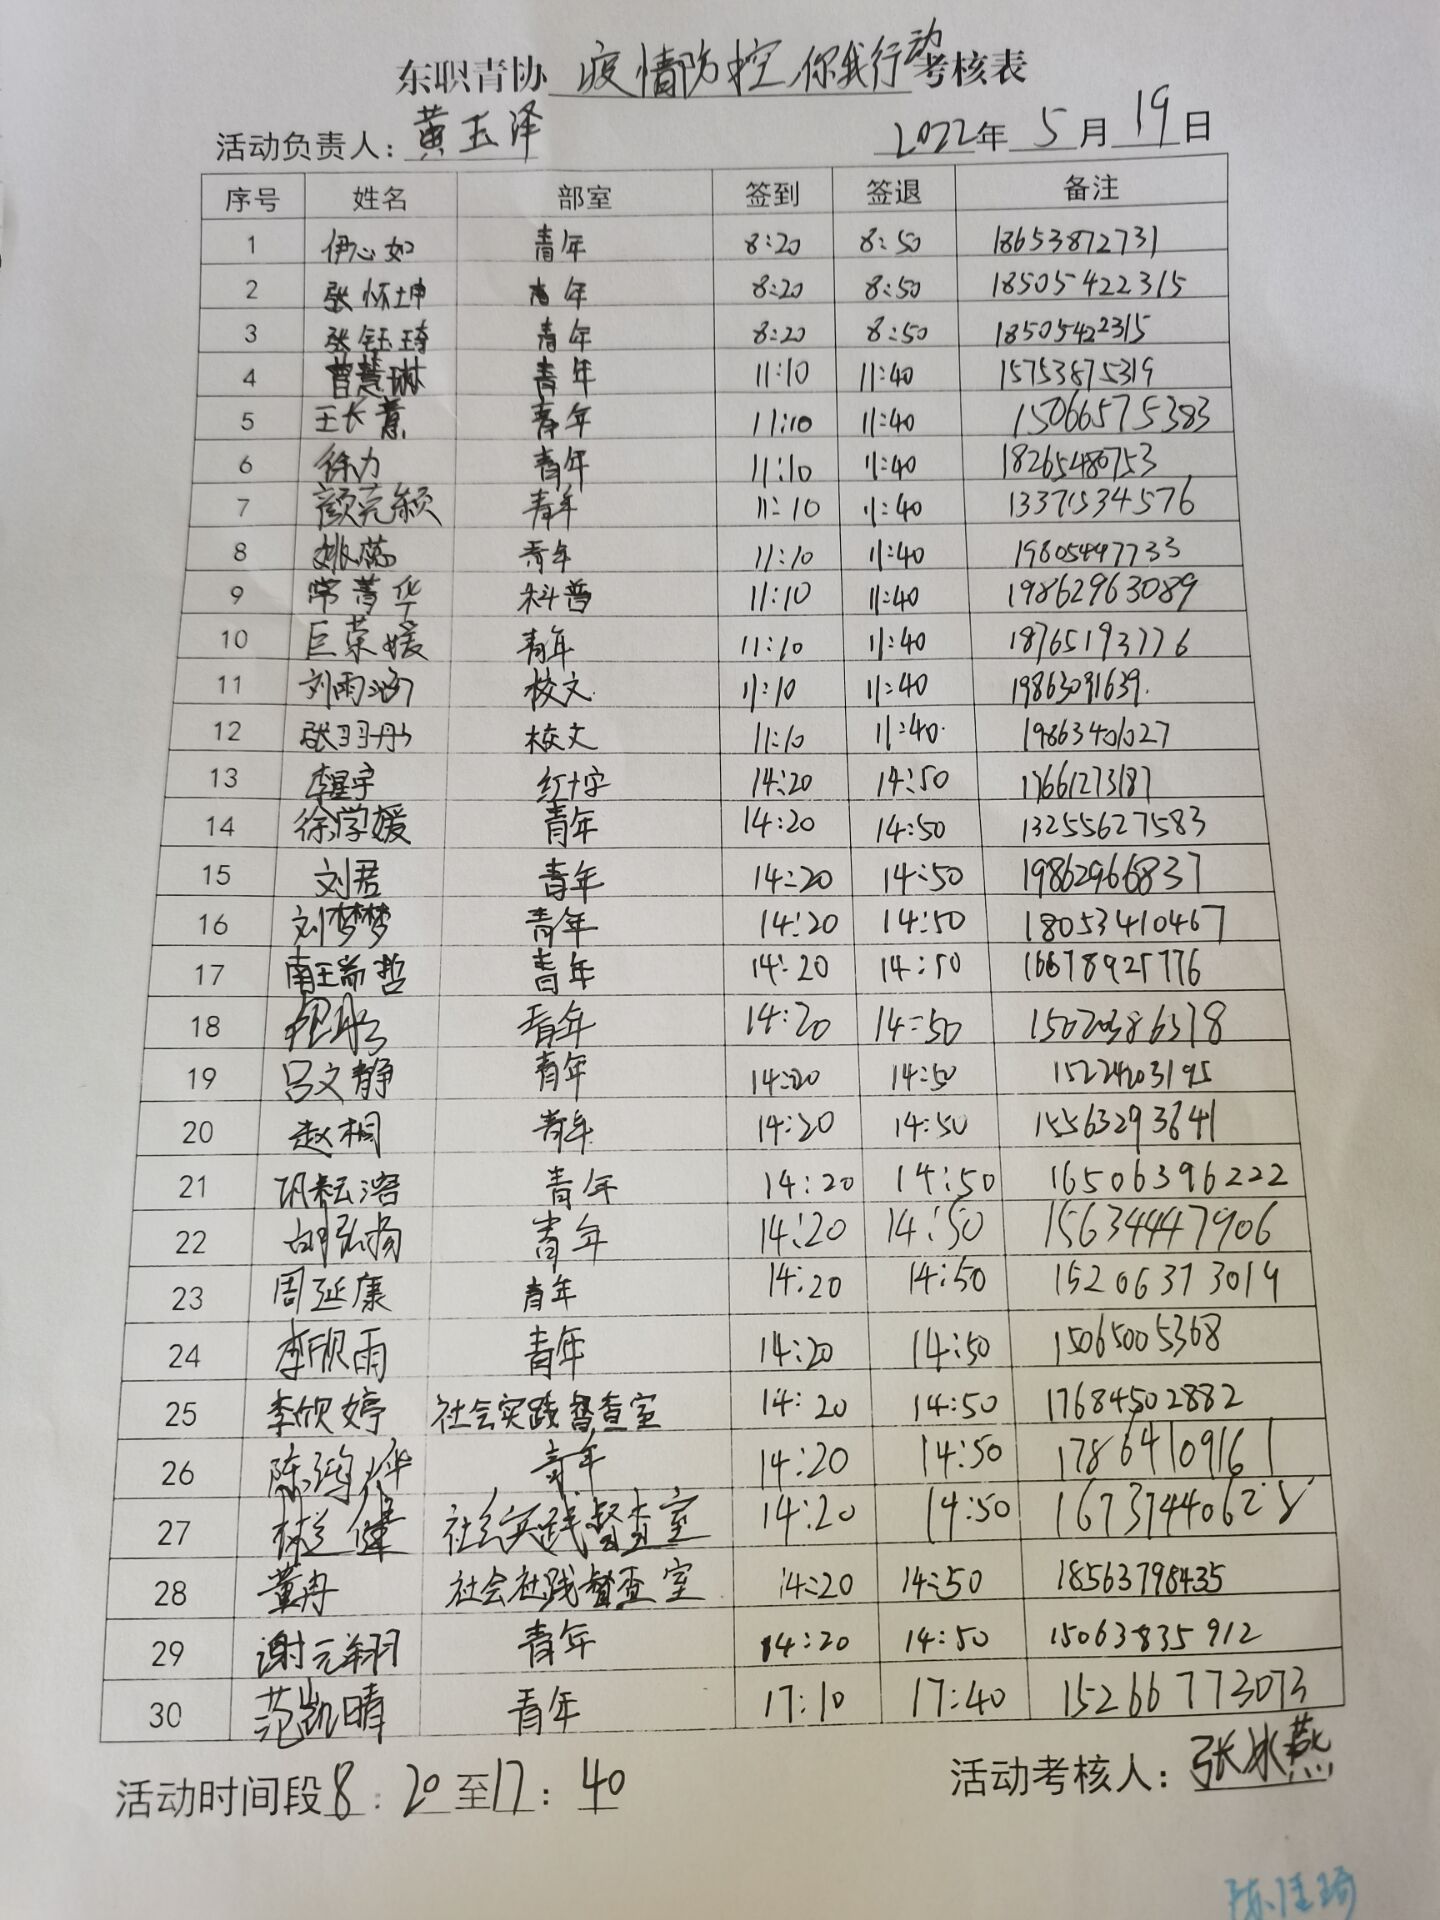 东职青协 疫情防控,你我行动 考核表
活动负责人: 黄玉泽 2022年 5 月 19 日
序号 姓名 部室 签到 签退 备注
1 伊心如 青年 8:20 8:50 18653872731
2 张怀坤 青年 8:20 8:50 18505422315
3 张钰琦 青年 8:20 8:50 18505422315
4 曹慧琳 青年 11:10 11:40 15753875319
5 王长薰 青年 11:10 11:40 15066575383
6 徐力 青年 11:10 11:40 18265480753
7 颜亮颖 青年 11:10 11:40 13371534576
8 姚蕊 青年 11:10 11:40 19805497733
9 常菁华 科普 11:10 11:40 19862963089
10 巨荣媛 青年 11:10 11:40 18765193776
11 刘雨涵 校文 11:10 11:40 19863091639
12 张羽彤 校文 11:10 11:40 19863401027
13 李星宇 红十字 14:20 14:50 17661273187
14 徐学媛 青年 14:20 14:50 13255627583
15 刘君 青年 14:20 14:50 19862966837
16 刘梦梦 青年 14:20 14:50 18053410467
17 南瑞哲 青年 14:20 14:50 16678925776
18 青年 14:20 14:50 15020386378
19 吕文静 青年 14:20 14:50 15224203195
20 赵桐 青年 14:20 14:50 15563293641
21 巩耘溶 青年 14:20 14:50 16506396222
22 胡弘扬 青年 14:20 14:50 15634447906
23 周延康 青年 14:20 14:50 15206373019
24 李欣雨 青年 14:20 14:50 15065005368
25 李欣婷 社会实践督查室 14:20 14:50 17684502882
26 陈鸿烨 青年 14:20 14:50 17864109161
27 林兰健 社会实践督查室 14:20 14:50 16737440628
28 董冉 社会社践督查室 14:20 14:50 18563798435
29 谢元翔 青年 14:20 14:50 15063835912
30 范凯晴 青年 17:10 17:40 15266773073
活动时间段 8:20 至 17:40 活动考核人: 张冰燕
陈佳琦